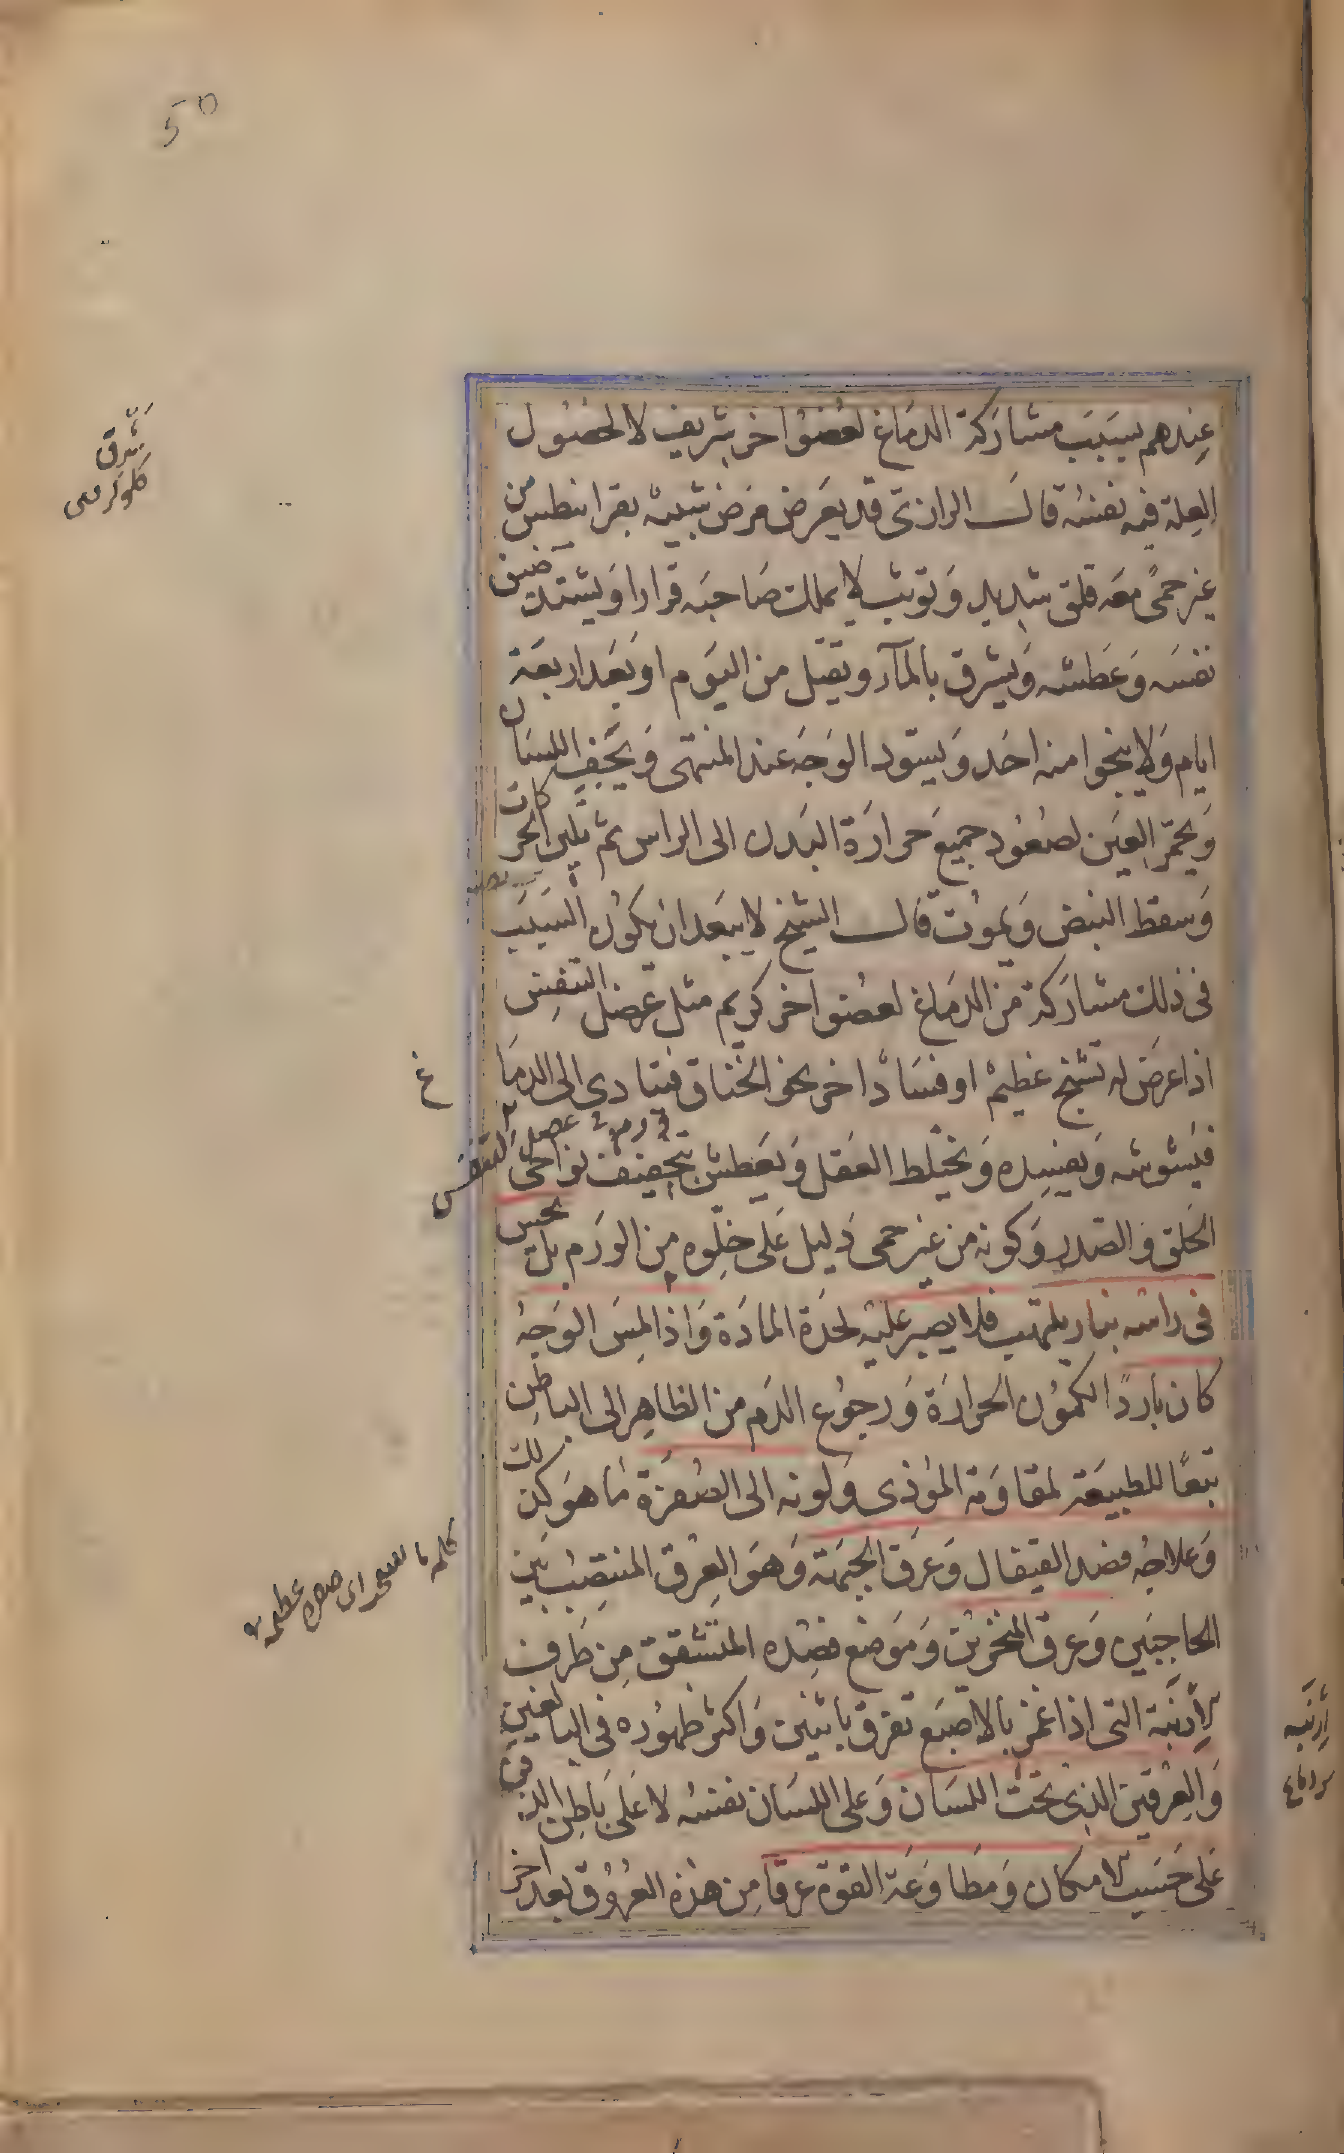 عندهم بسبب مشاركة الدماغ لعضو اخر شريف لا لحصول
العلة فيه نفسه قال الرازى قد يعرض مرض شبيه بقرانيطس من
غير حمى معه قلق شديد وتوثب لا يملك صاحبه قرارا ويشتد ضيق
نفسه وعطشه ويشرق بالماء ويقتل من اليوم او بعد اربعة
ايام ولا ينجوا منه احد ويسود الوجه عند المنتهى ويجف اللسان
ويحمر العين لصعود جميع حرارة البدن الى الراس ثم يلين الحركات
وسقط النبض ويموت قال الشيخ لا يبعد ان يكون السبب
فى ذلك مشاركة من الدماغ لعضو اخر كريم مثل عضل التنفس
اذا عرض له تشنج عظيم او فساد اخر نحو الخناق فيتادى الى الدماغ
فيشوشه ويفسده ويخيلط العقل ويعطش بتجفيف نواحى
الحلق والصدر وكونه من غير حمى دليل على خلوه من الورم بل يحس
فى راسه بنار يلتهب فلا يصبر عليه لحدة المادة واذا لمس الوجه
كان باردا لكمون الحرارة ورجوع الدم من الظاهر الى الباطن
تبعا للطبيعة لمقاومة المؤذى ولونه الى الصفرة ما هو كذلك
وعلاجه فصد القيفال وعرق الجبهة وهو العرق المنتصب بين
الحاجبين وعرق المنخرين وموضع فصده المتشقق من طرف
الارنبة التى اذا غمز بالاصبع تفرق باثنين واكثر ظهوره فى البالغين
والعرقين الذى تحت اللسان وعلى اللسان نفسه لا على باطن الذقن
على حسب الامكان ومطاوعة القوة عرقا من هذه العروق بعد اخر
شرق
ارنبه